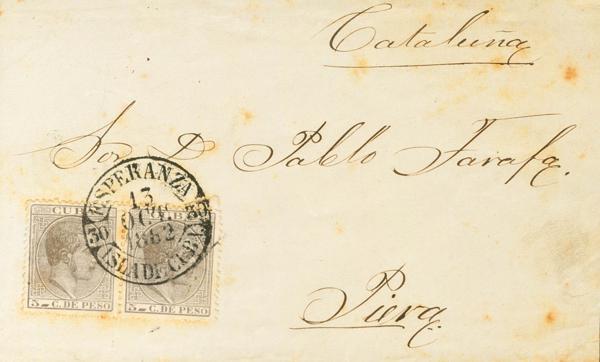 Cataluña
Sor. D. Pablo Farafa.
ESPERANZA
13
OCT.
1882
30 30
ISLA DE CUBA
CUBA CUBA
5 C. DE PESO 5 C. DE PESO
Piera